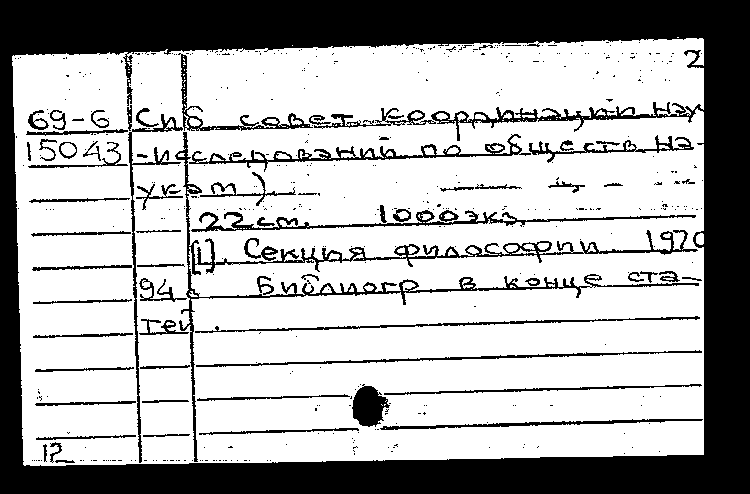 2
69-6 Сиб совет координации нау
15043 -исследований по обществ на-
укам).
22см. 1000экз.
[1]. Секция философии. 1970
94 с Библиогр в конце ста-
тей.
12